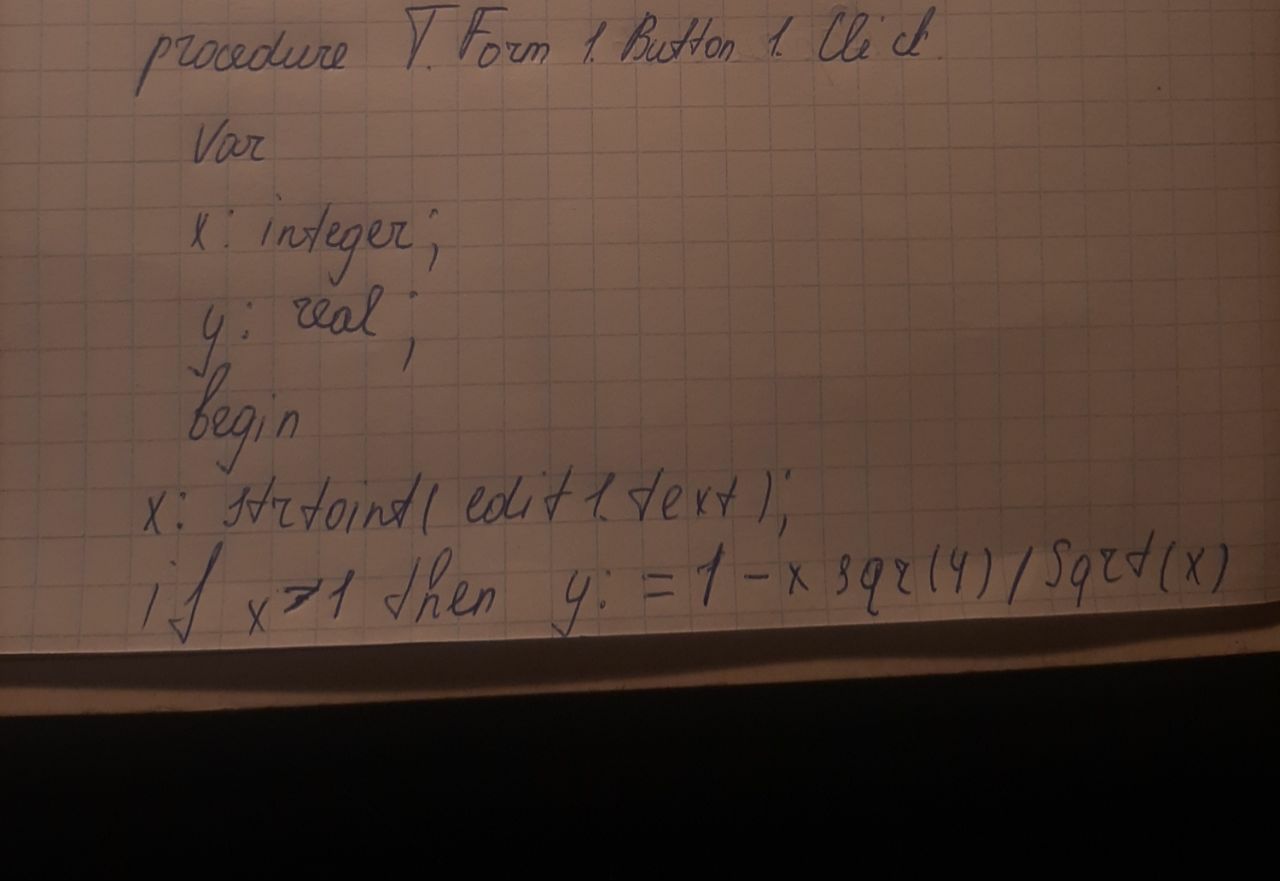 procedure T. Form 1. Button 1. Click.
Var
x: integer;
y: real;
begin
x: strtoint( edit 1. text );
if x>1 then y: = 1 - x sqr(4) / Sqrt(x)